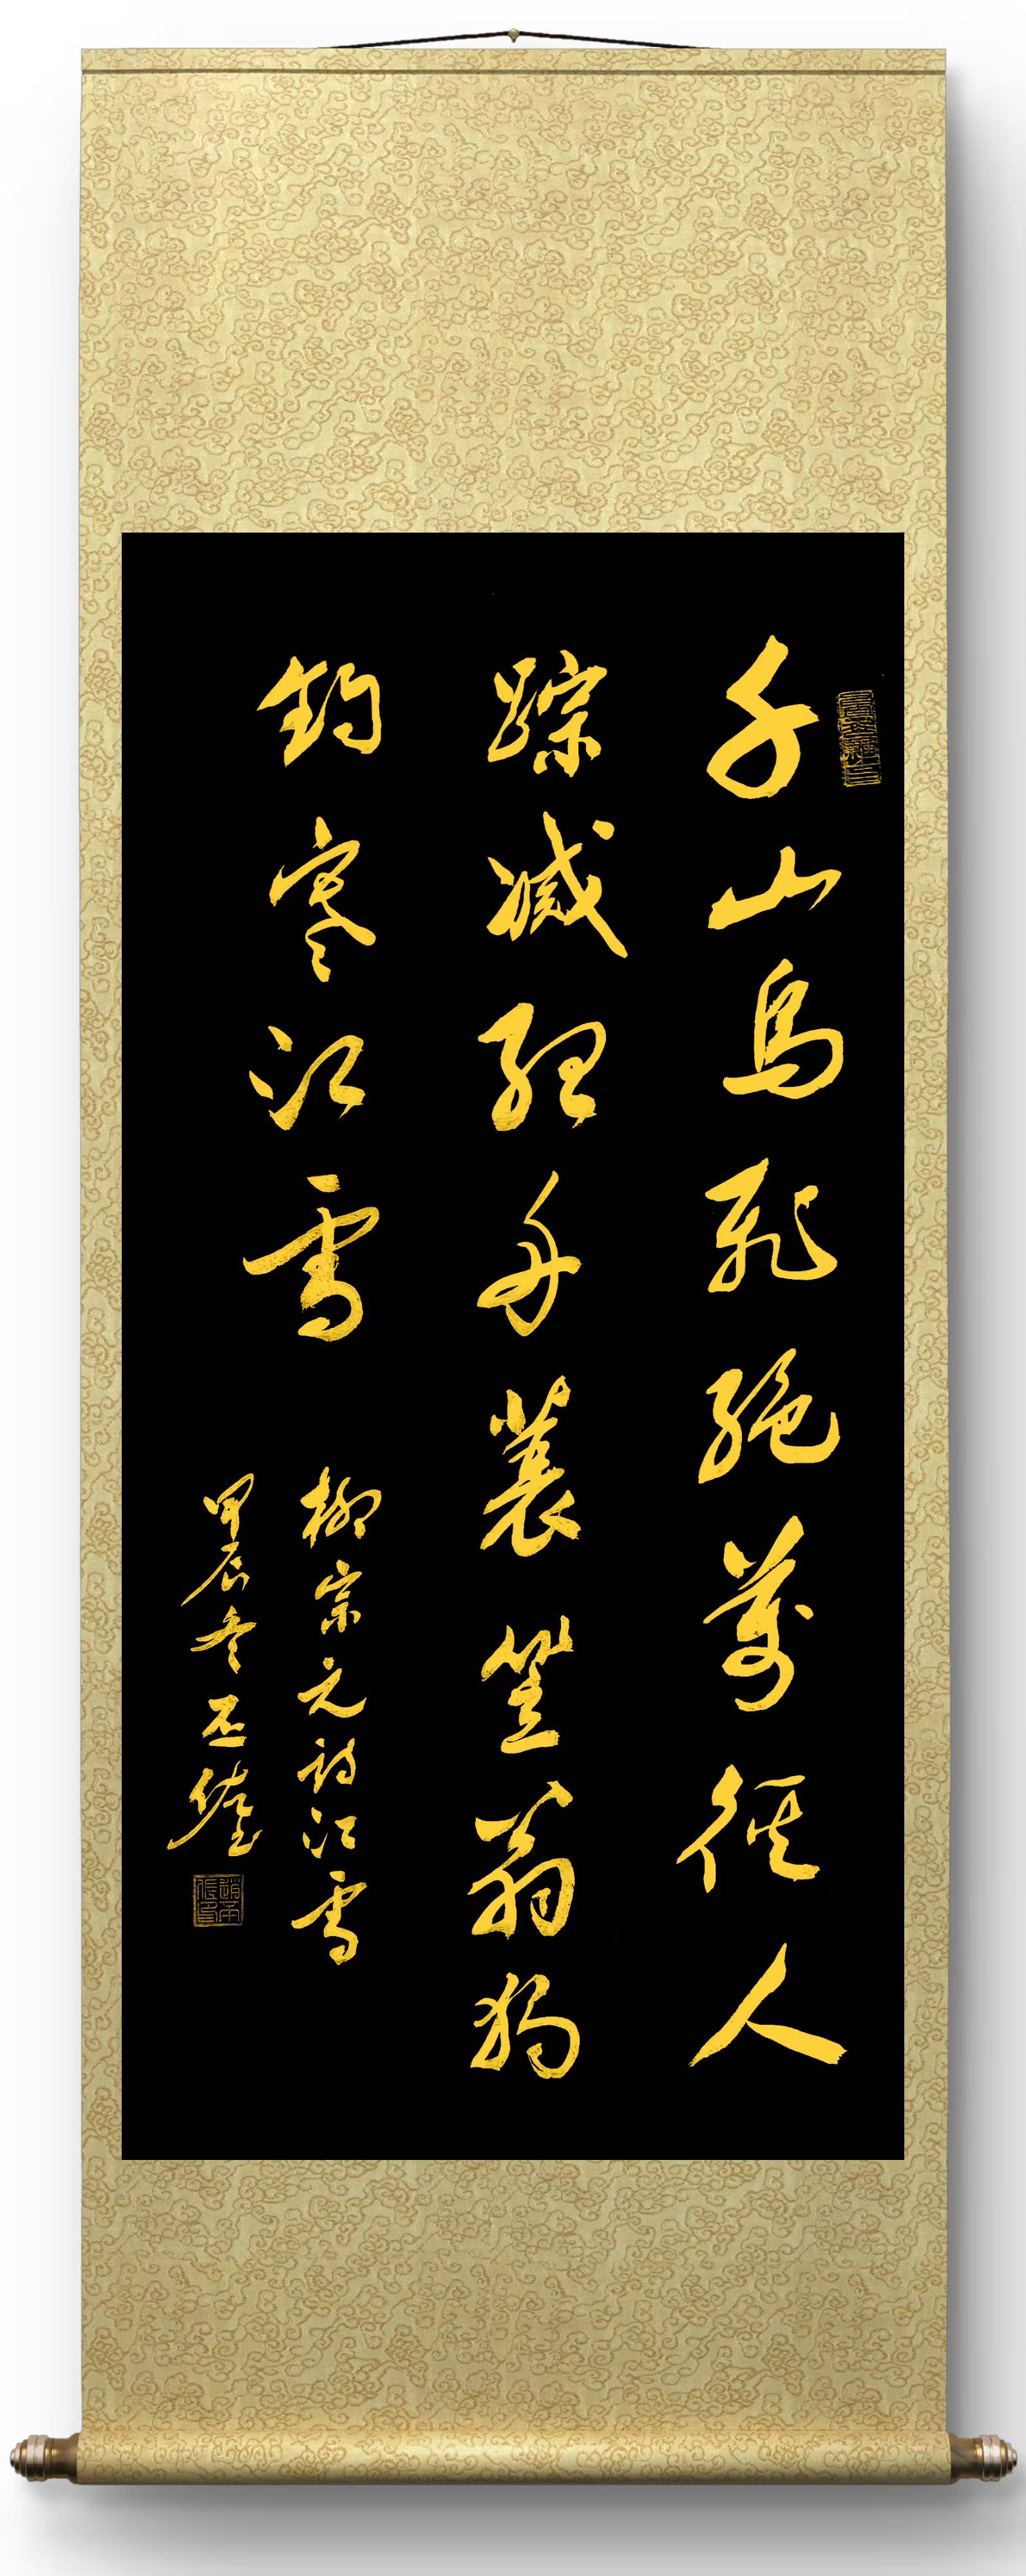 千山鳥飛絕萬徑人
踪滅孤舟蓑笠翁獨
釣寒江雪
柳宗元詩江雪
甲辰冬